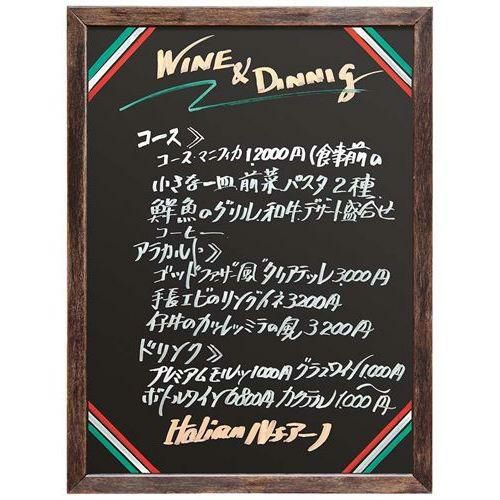 WINE & DINNIG
コース》
コース・マニフィカ 12000円(食事前の
小さな一皿 前菜 パスタ2種
鮮魚のグリル、和牛、デザート盛合せ
コーヒー
アラカルト》
ゴッドファザー風"タリアテッレ 3,000円
手長エビのリングイネ 3200円
仔牛のカツレツミラノ風 3200円
ドリンク》
プレミアムモルツ 1000円 グラスワイン 1000円
ボトルワイン 6800円 カクテル 1,000円〜
Italian